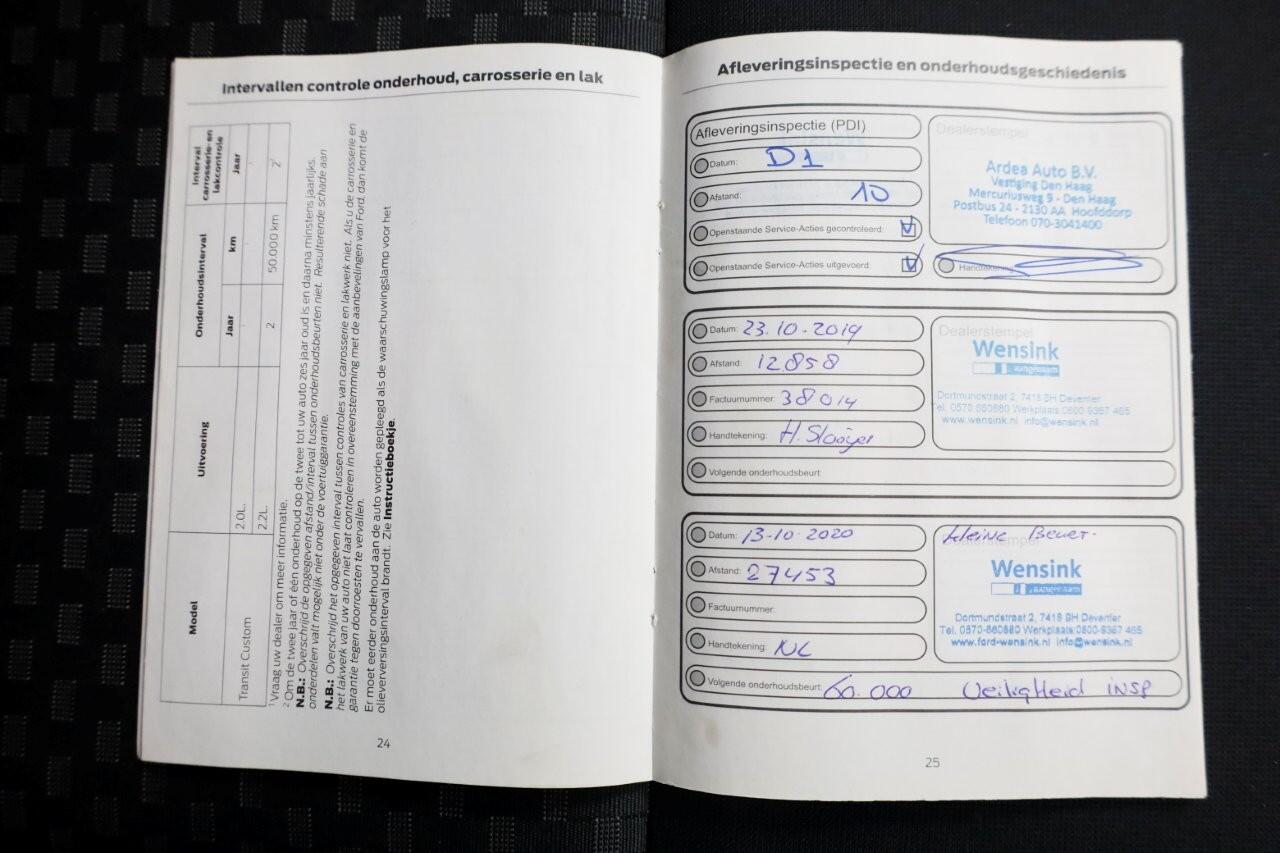 Intervallen controle onderhoud, carrosserie en lak
Model
Uitvoering
Onderhoudsinterval
Interval carrosserie-en lakcontrole
Jaar
km
Jaar
Transit Custom
2.0L.
2.2L.
2
50.000 km
2
1 Vraag uw dealer om meer informatie.
2 Om de twee jaar of één onderhoud op de twee tot uw auto zes jaar oud is en daarna minstens jaarlijks.
N.B.: Overschrijd de opgegeven afstand/interval tussen onderhoudsbeurten niet. Resulterende schade aan
onderdelen valt mogelijk niet onder de voertuiggarantie.
N.B.: Overschrijd het opgegeven interval tussen controles van carrosserie en lakwerk niet. Als u de carrosserie en
het lakwerk van uw auto niet laat controleren in overeenstemming met de aanbevelingen van Ford, dan komt de
garantie tegen doorroesten te vervallen.
Er moet eerder onderhoud aan de auto worden gepleegd als de waarschuwingslamp voor het
olieverversingsinterval brandt. Zie Instructieboekje.
24
Afleveringsinspectie en onderhoudsgeschiedenis
Afleveringsinspectie (PDI)
Datum: D1
Afstand: 10
Openstaande Service-Acties gecontroleerd:
Openstaande Service-Acties uitgevoerd:
Dealerstempel
Ardea Auto B.V.
Vestiging Den Haag
Mercuriusweg 9 - Den Haag
Postbus 24 - 2130 AA Hoofddorp
Telefoon 070-3041400
Handtekening
Datum: 23.10.2019
Afstand: 12858
Factuurnummer: 38014
Handtekening: H. Slooijer
Volgende onderhoudsbeurt:
Dealerstempel
Wensink
aangenaam
Dortmundstraat 2, 7418 BH Deventer
Tel. 0570-660660 Werkplaats:0800-9367 465
www.wensink.nl info@wensink.nl
Datum: 13-10-2020
Afstand: 27453
Factuurnummer:
Handtekening: NL
Volgende onderhoudsbeurt: 60.000 Veiligheid INSP
kleine Beurt.
Wensink
aangenaam
Dortmundstraat 2, 7418 BH Deventer
Tel. 0570-660660 Werkplaats:0800-9367 465
www.ford-wensink.nl info@wensink.nl
25